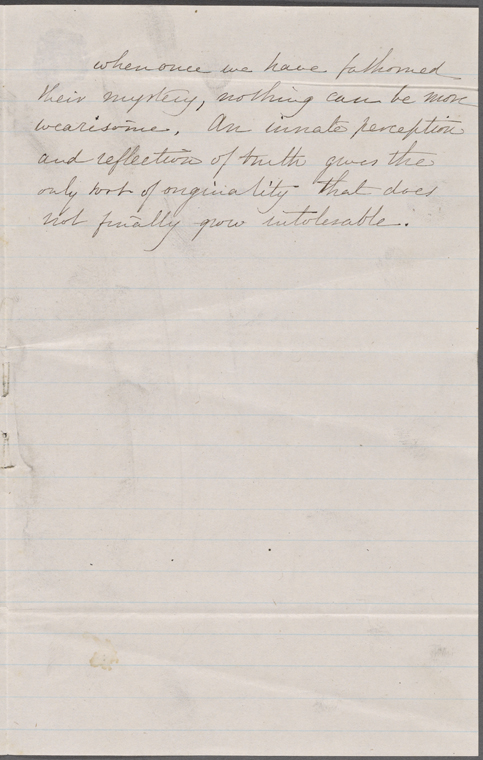 when once we have fathomed
their mystery, nothing can be more
wearisome. An innate perception
and reflection of truth gives the
only sort of originality that does
not finally grow intolerable.